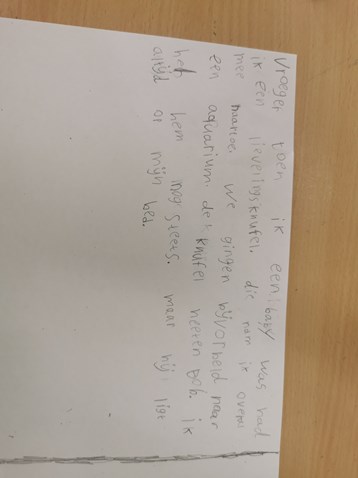 Vroeger toen ik een baby was had
ik een lievelingsknuffel. die nam ik overal
mee naartoe. we gingen bijvorbeeld naar
een aquarium. de knuffel heeren Bob. ik
heb hem nog steets. maar hij ligt
altijd op mijn bed.